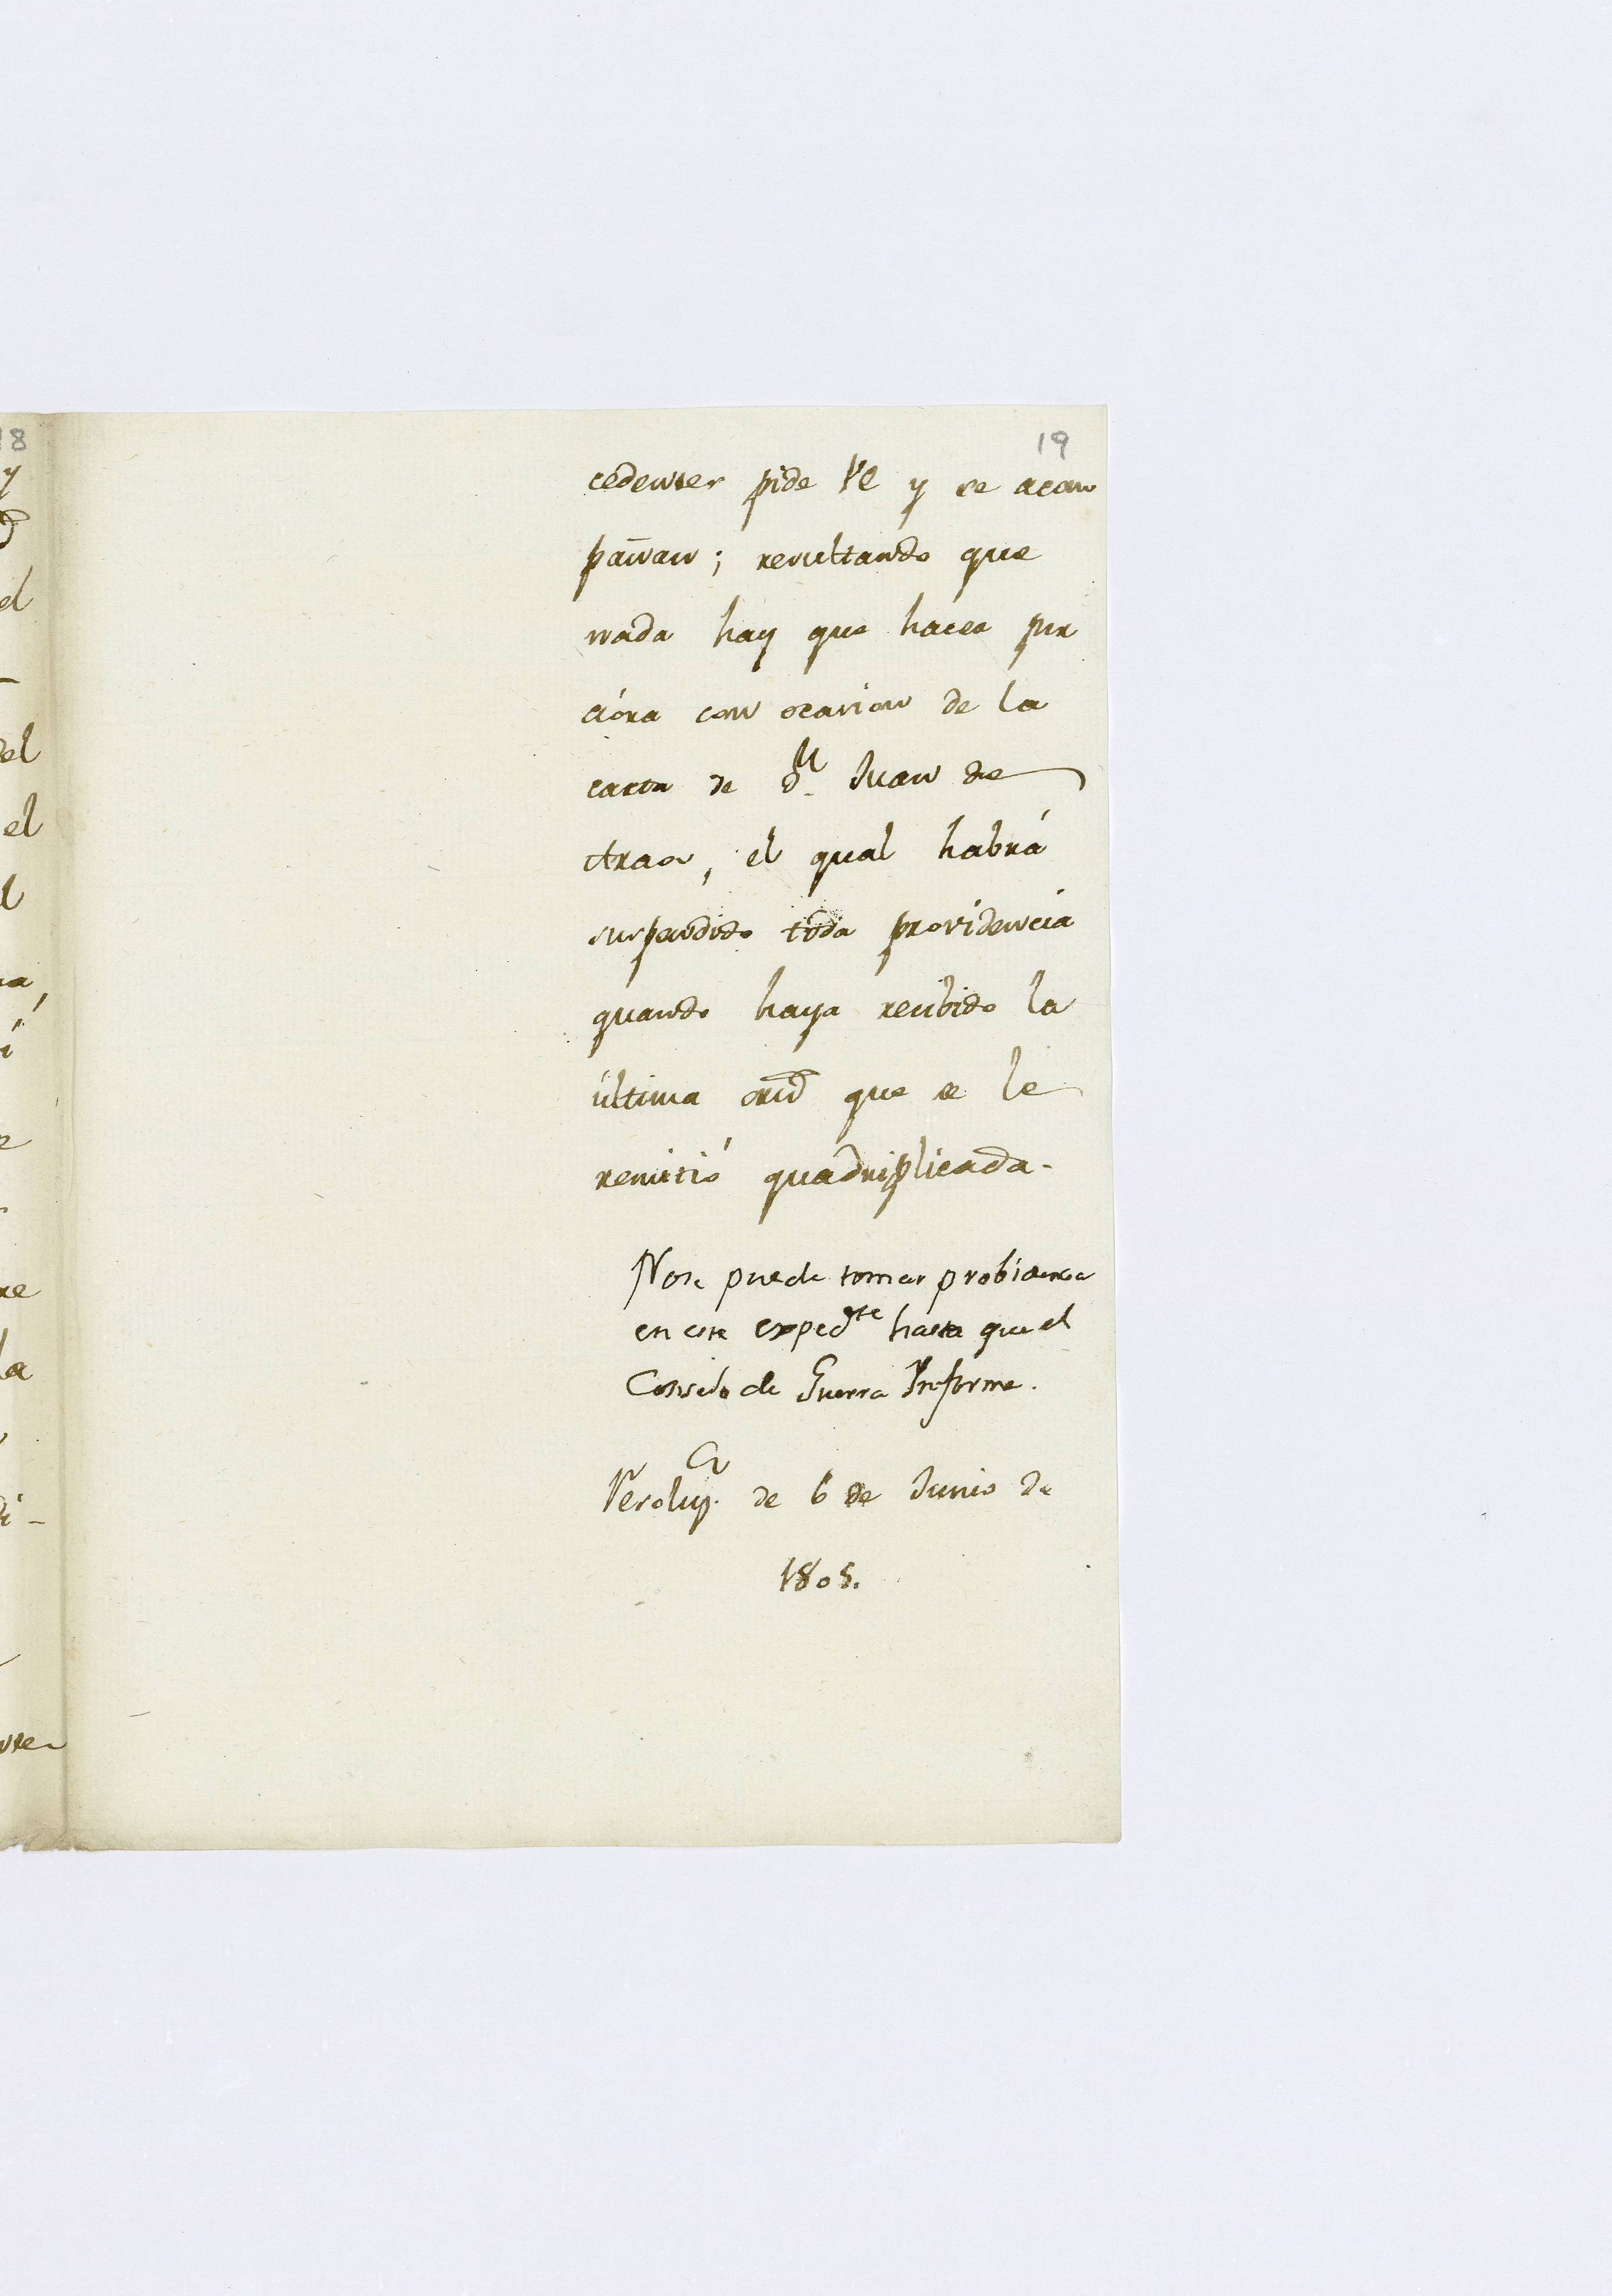 19
cedentes pide VE y se acom
pañan; resultando que
nada hay que hacer por
aóra con ocasion de la
carta de Dn. Juan de
otraa, el qual habrá
suspendido toda providencia
quando haya recibido la
última ord que se le
remitió quadriplicada.
No se puede tomar probidencia
en este expedte hasta que el
Consejo de Guerra Informe.
Resolun. de 6 de Junio de
1805.
18
y
el
del
el
l
re
la